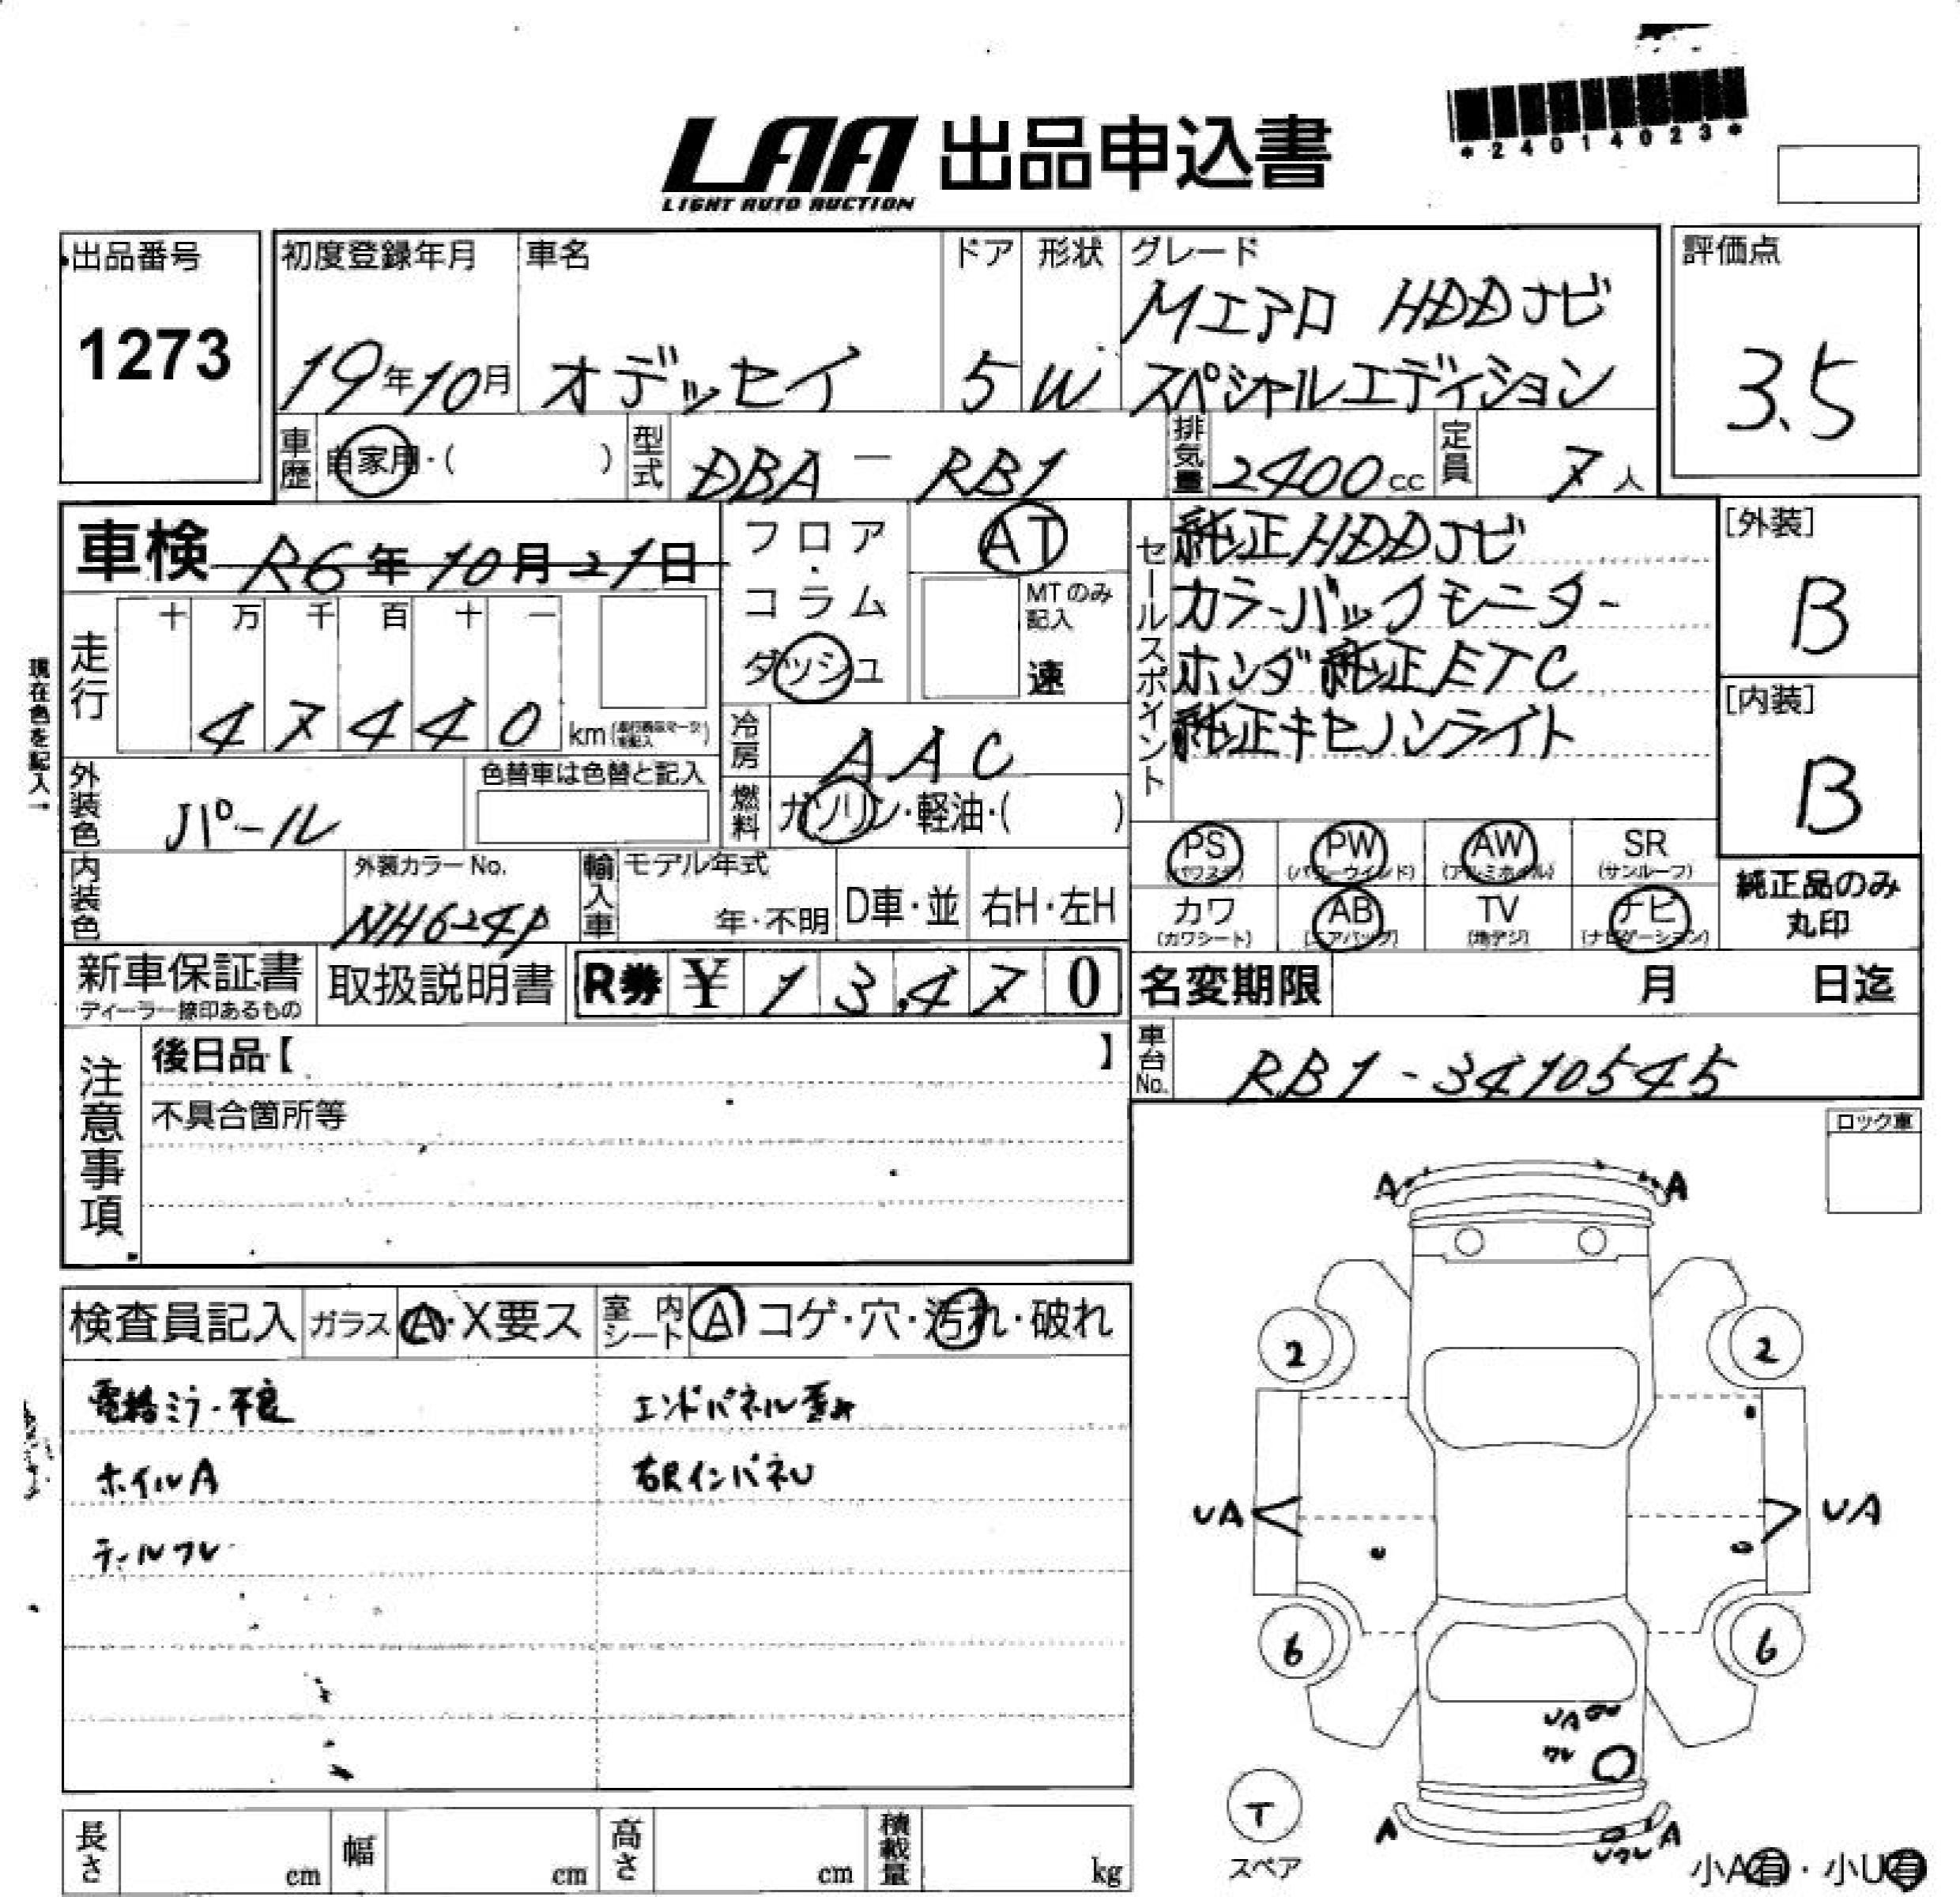 *24014023*
LAA 出品申込書
LIGHT AUTO AUCTION
出品番号
1273
初度登録年月
19年10月
車名
オデッセイ
ドア
5
形状
W
グレード
Mエアロ HDDナビ
スペシャルエディション
評価点
3.5
車歴 自家用・( )
型式 DBA - RB1
排気量 2400cc
定員 7人
車検 R6年10月21日
フロア・
コラム
ダッシュ
AT
MTのみ
記入
速
セールスポイント
純正HDDナビ
カラーバックモニター
ホンダ純正ETC
純正キセノンライト
[外装]
B
[内装]
B
現在色を記入→
走行
十 万 千 百 十 一
4 7 4 4 0 km
冷房 AAC
燃料 ガソリン・軽油・( )
外装色 パール
色替車は色替と記入
内装色
外装カラーNo.
NH624P
輸入車
モデル年式
年・不明
D車・並
右H・左H
PS (パワステ)
PW (パワーウインド)
AW (アルミホイル)
SR (サンルーフ)
カワ (カワシート)
AB (エアバッグ)
TV (地デジ)
ナビ (ナビゲーション)
純正品のみ
丸印
新車保証書
ディーラー捺印あるもの
取扱説明書
R券 ¥ 13,470
名変期限 月 日迄
車台No. RB1-3410545
注意事項
後日品【 】
不具合箇所等
ロック車
検査員記入
ガラス A・X要ス
室内シート A コゲ・穴・汚れ・破れ
電格ミラー不良
ホイルA
テールワレ
エンドパネル歪み
右RインパネU
A A
2 2
UA UA
6 6
UA
ワレ
T
スペア
A A
ワレ
小A有・小U有
長さ cm
幅 cm
高さ cm
積載量 kg